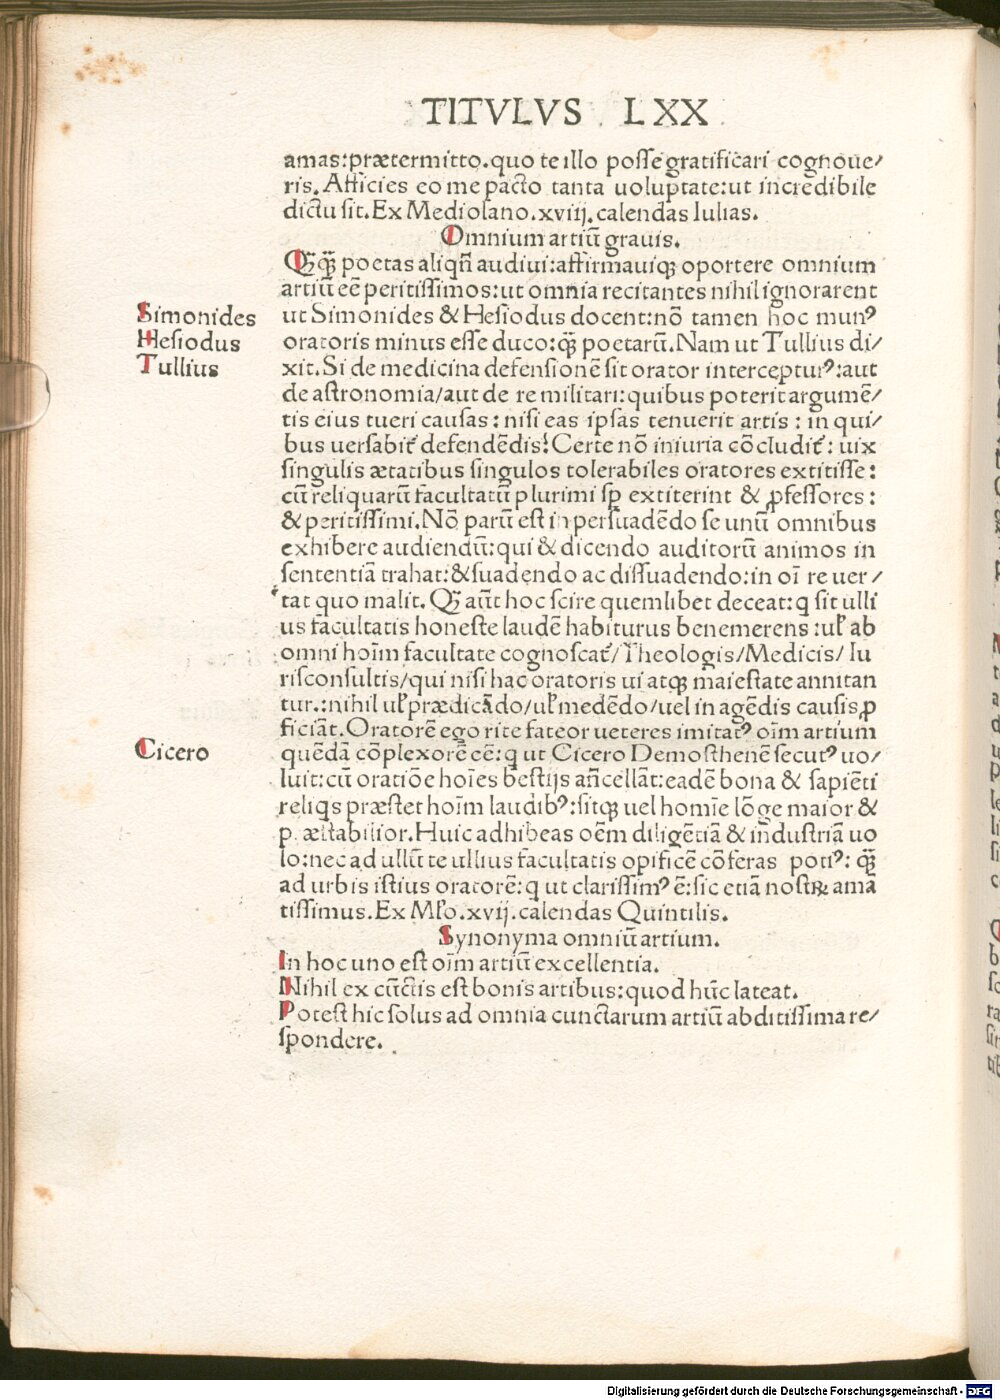 TITVLVS LXX
amas:prætermitto.quo te illo posse gratificari cognoue/
ris.Afficies eo me pacto tanta uoluptate:ut incredibile
dictu sit.Ex Mediolano.xviij.calendas Iulias.
Omnium artiū grauis.
Qꝫqꝫ poetas aliqñ audiui:affirmauiqꝫ oportere omnium
artiū eē peritissimos:ut omnia recitantes nihil ignorarent
Simonides
ut Simonides & Hesiodus docent:nō tamen hoc munꝰ
Hesiodus
oratoris minus esse duco:qꝫ poetarū.Nam ut Tullius di/
Tullius
xit.Si de medicina defensionē sit orator intercepturꝰ:aut
de astronomia/aut de re militari:quibus poterit argumē/
tis eius tueri causas:nisi eas ipsas tenuerit artis:in qui/
bus uersabit᷑ defendēdis?Certe nō iniuria cōcludit᷑:uix
singulis ætatibus singulos tolerabiles oratores extitisse:
cū reliquarū facultatū plurimi sp̄ extiterint & ꝓfessores:
& peritissimi.Nō parū est in persuadēdo se unū omnibus
exhibere audiendū:qui & dicendo auditorū animos in
sententiā trahat:& suadendo ac dissuadendo:in oī re uer/
tat quo malit.Qꝫ aūt hoc scire quemlibet deceat:q sit ulli
us facultatis honeste laudē habiturus benemerens:ul̓ ab
omni hoīm facultate cognoscat᷑/Theologis/Medicis/Iu
risconsultis/qui nisi hac oratoris ui atqꝫ maiestate annitan
tur.:nihil ul̓ prædicādo/ul̓ medēdo/uel in agēdis causis ꝓ
ficiāt.Oratorē ego rite fateor ueteres imitatꝰ oīm artium
Cicero
quēdā cōplexorē eē:q ut Cicero Demosthenē secutꝰ uo/
luit:cū oratiōe hoīes bestijs añcellāt:eadē bona & sapiēti
reliqs præstet hoīm laudibꝰ:sitqꝫ uel homīe lōge maior &
præstabilior.Huic adhibeas oēm diligētiā & industriā uo
lo:nec ad ullū te ullius facultatis opificē cōferas potiꝰ:qꝫ
ad urbis istius oratorē:q ut clarissimꝰ ē:sic etiā nostꝝ amā
tissimus.Ex Ml̓o.xvij.calendas Quintilis.
Synonyma omniū artium.
In hoc uno est oīm artiū excellentia.
Nihil ex cūctis est bonis artibus:quod hūc lateat.
Potest hic solus ad omnia cunctarum artiū abditissima re/
spondere.
Digitalisierung gefördert durch die Deutsche Forschungsgemeinschaft - DFG